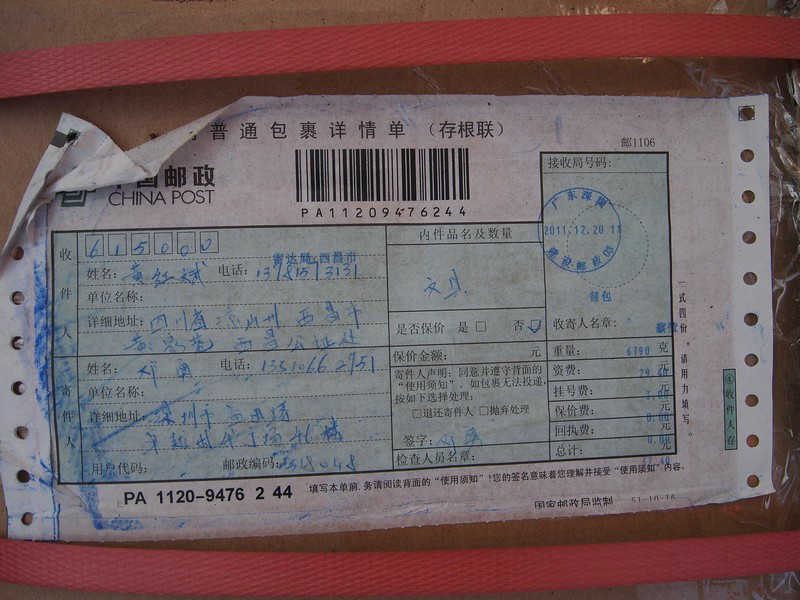 普通包裹详情单 (存根联)
邮1106
中国邮政
CHINA POST
PA11209476244
接收局号码:
广东深圳
2011.12.20 11
收件人
615000
寄达局:西昌市
姓名: 电话:
单位名称:
详细地址: 四川省凉山州西昌市
西昌公证处
寄件人
姓名: 邓勇 电话:
单位名称:
详细地址: 深圳市
用户代码: 邮政编码:
内件品名及数量
文具
是否保价 是 □ 否 ☑
保价金额: 元
寄件人声明:同意并遵守背面的
“使用须知”,如包裹无法投递,
按如下选择处理:
□退还寄件人 □抛弃处理
签字: 邓勇
检查人员名章:
收寄人名章:
重量: 6790 克
资费: 元
挂号费: 3.00 元
保价费: 0.00 元
回执费: 0.00 元
总计: 元
一式四份,请用力填写。
收件人存
PA 1120-9476 2 44
填写本单前,务请阅读背面的“使用须知”!您的签名意味着您理解并接受“使用须知”内容。
国家邮政局监制